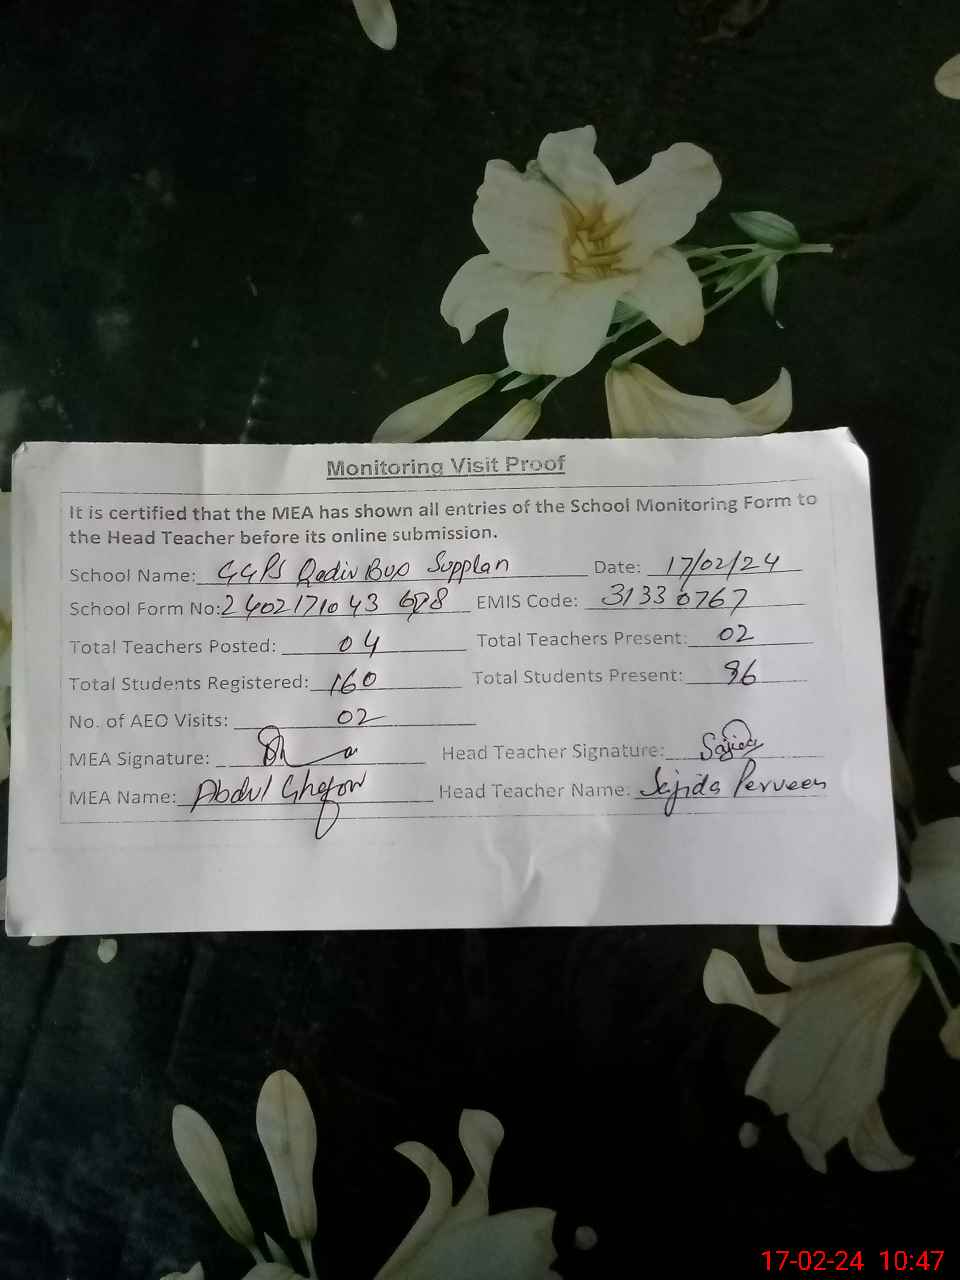 Monitoring Visit Proof
It is certified that the MEA has shown all entries of the School Monitoring Form to
the Head Teacher before its online submission.
School Name: GGPS Qadir Bux Supplan Date: 17/02/24
School Form No: 2402171043 678 EMIS Code: 31330767
Total Teachers Posted: 04 Total Teachers Present: 02
Total Students Registered: 160 Total Students Present: 96
No. of AEO Visits: 02
MEA Signature: Head Teacher Signature: Sajida
MEA Name: Abdul Ghafoor Head Teacher Name: Sajida Perveen
17-02-24 10:47